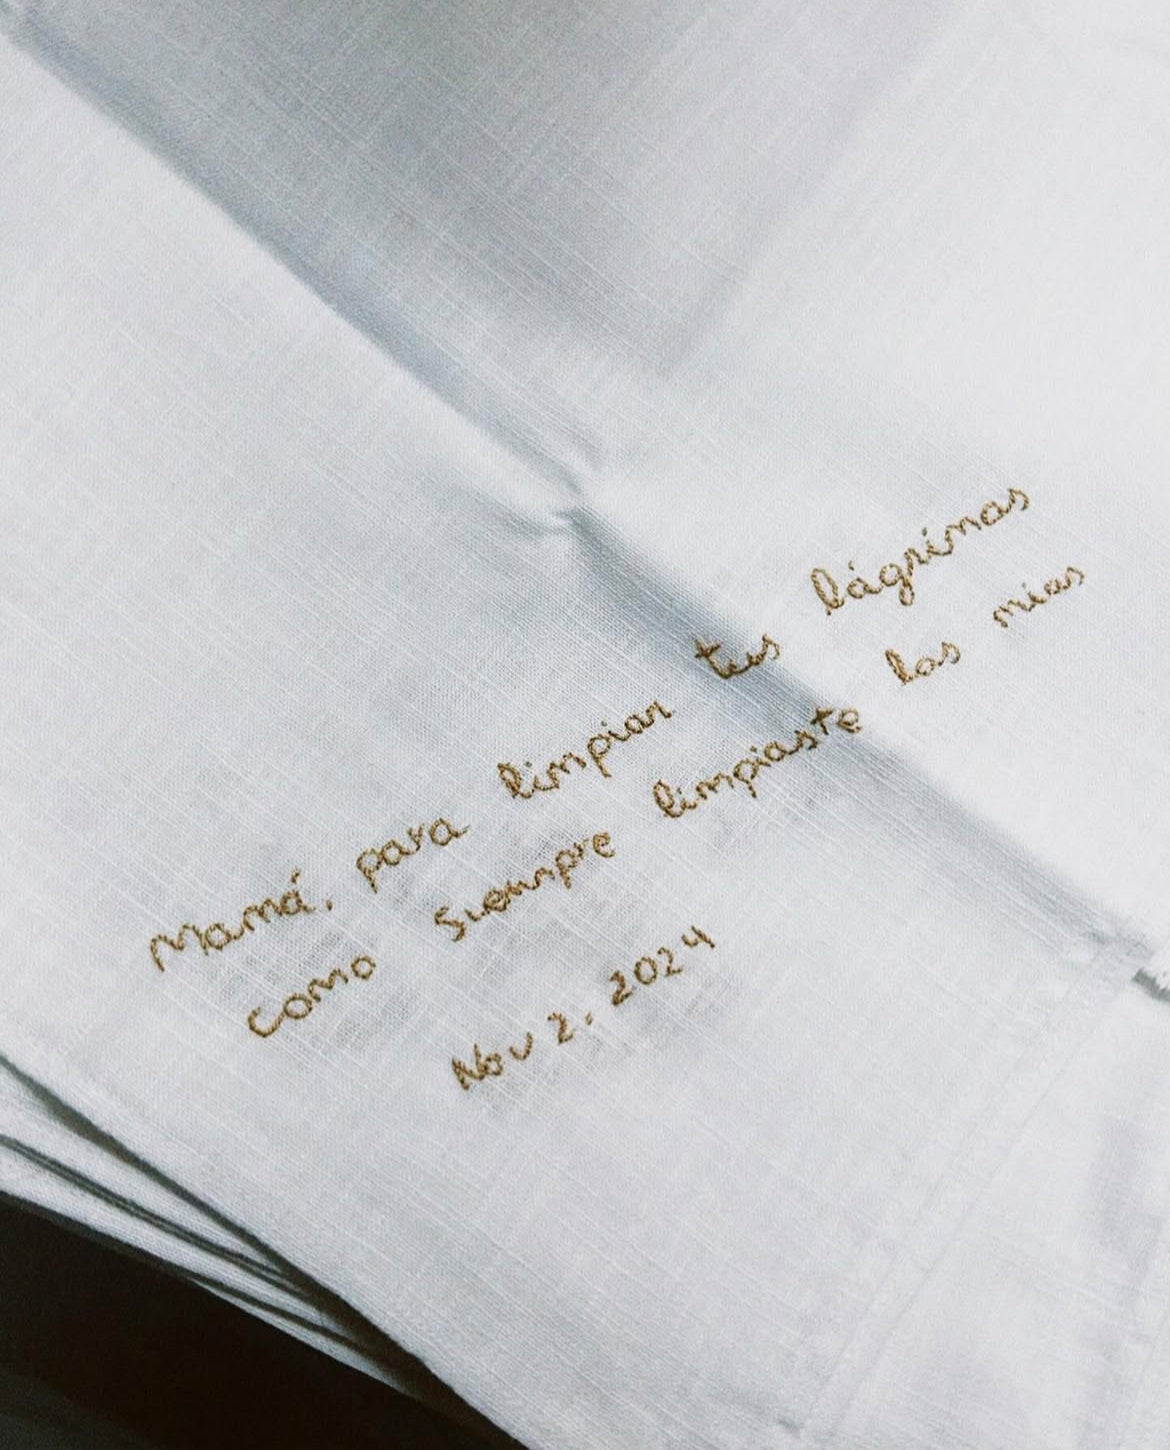 Mamá, para limpiar tus lágrimas
como siempre limpiaste las mias
Nov 2, 2024